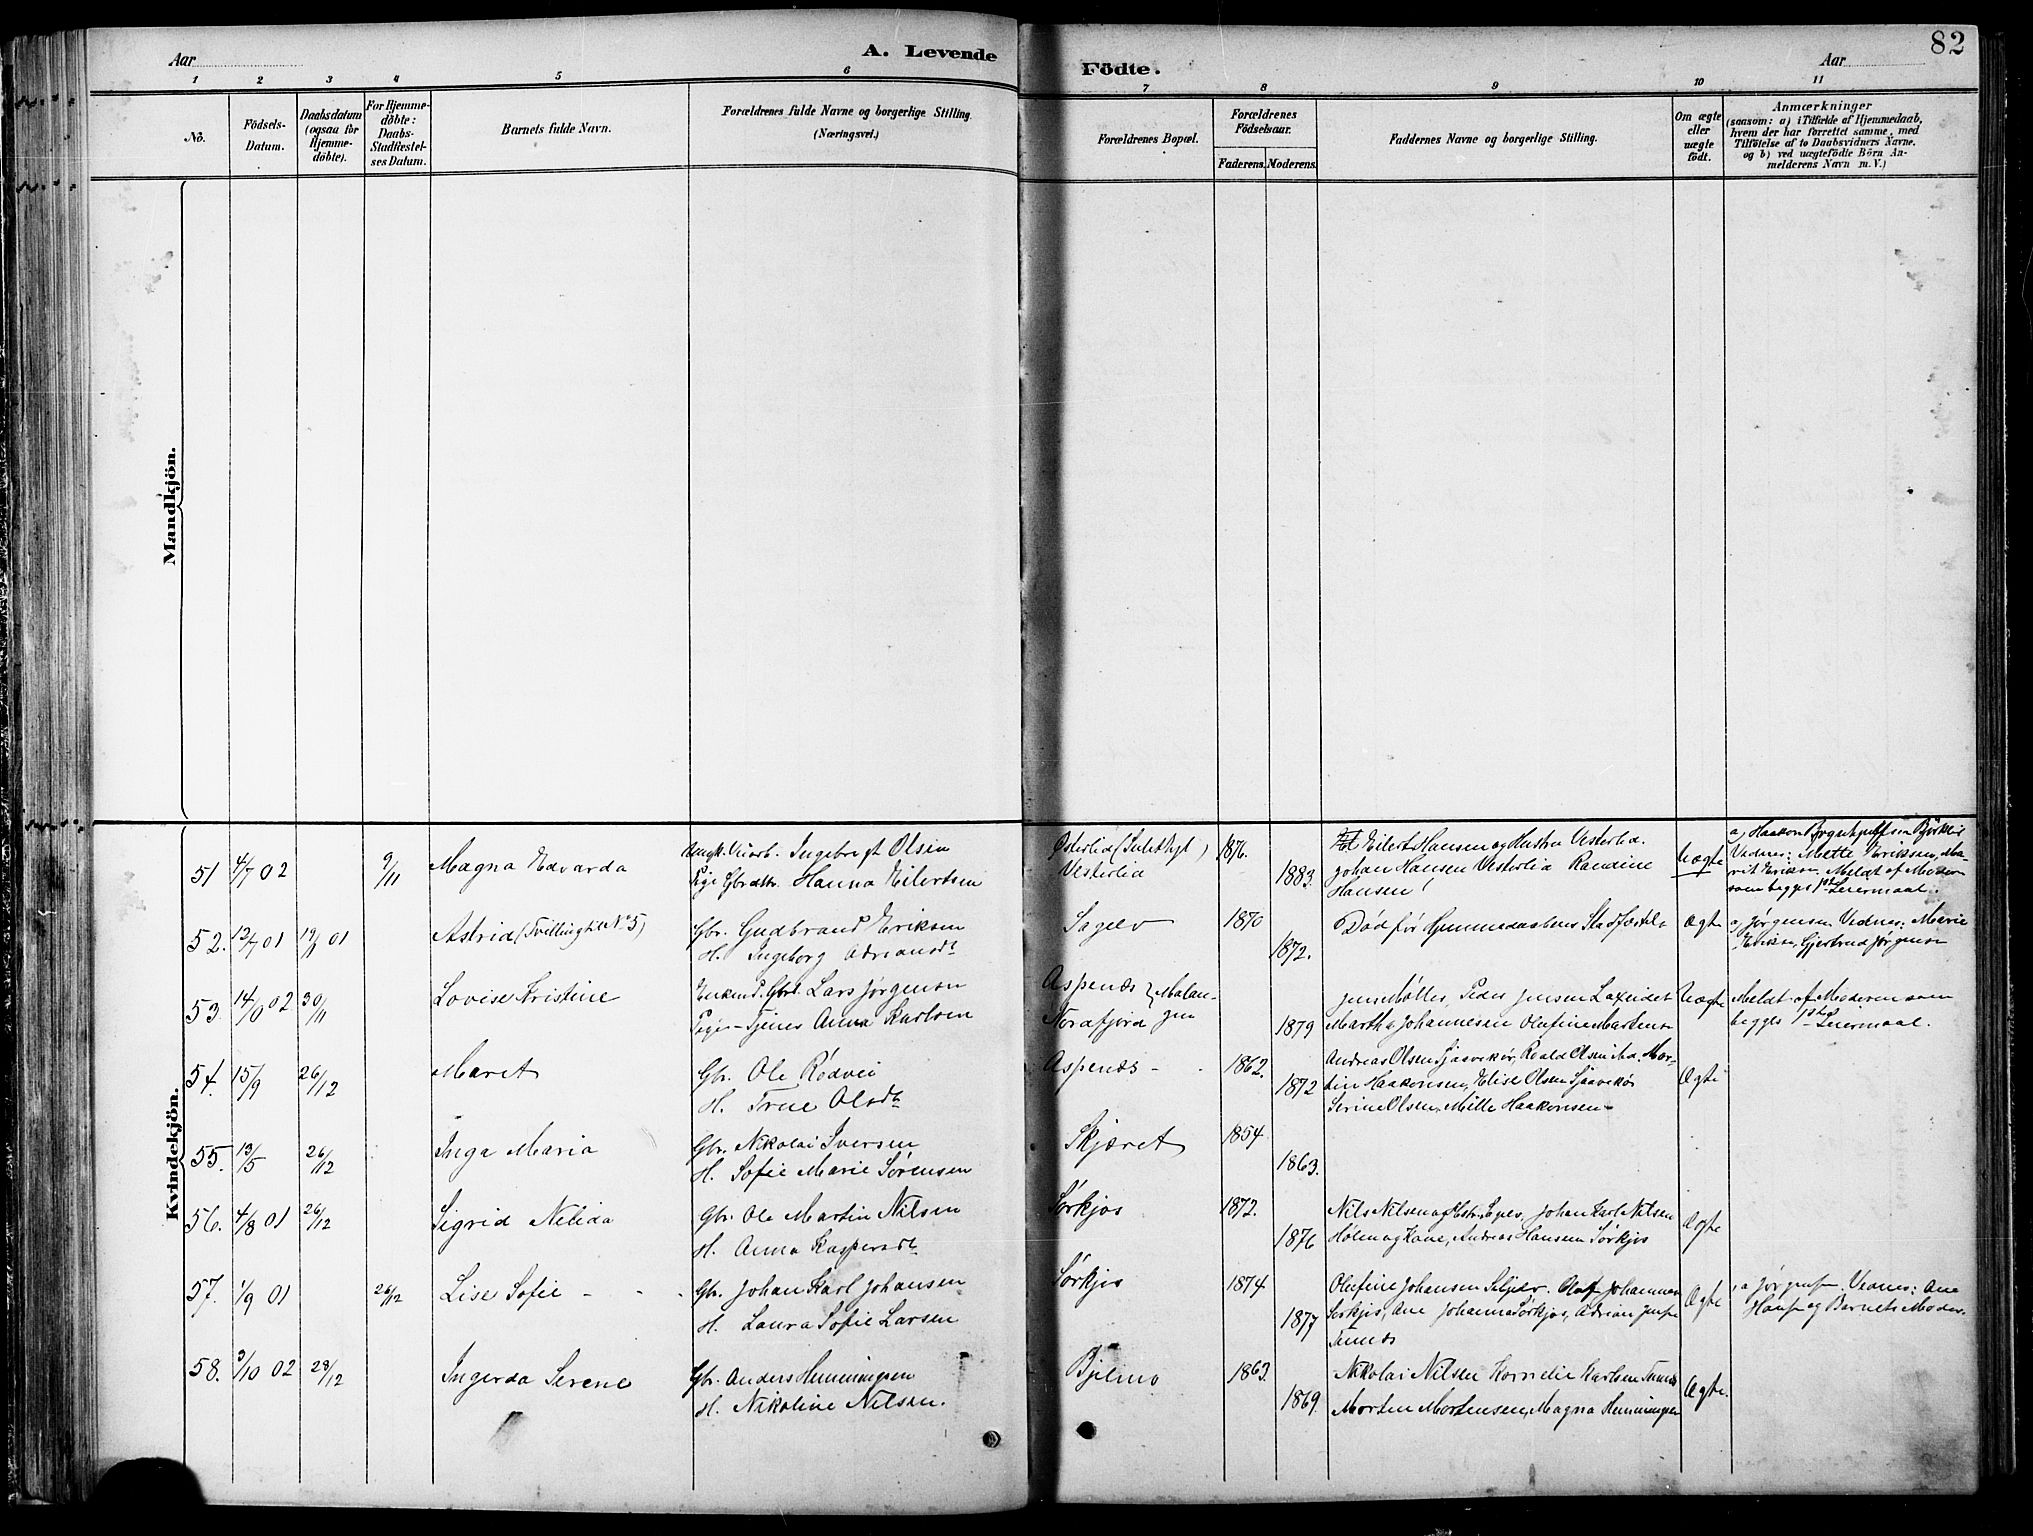 82
Aar
A. Levende
Födte.
Aar
1 2 3 4 5 6 7 8 9 10 11
No.
Födsels-
Datum.
Daabsdatum
(ogsaa for
Hjemme-
döbte).
For Hjemme-
döbte:
Daabs-
Stadfæstel-
ses Datum.
Barnets fulde Navn.
Forældrenes fulde Navne og borgerlige Stilling.
(Næringsvei.)
Forældrenes Bopæl.
Forældrenes
Födselsaar.
Faderens. Moderens.
Faddernes Navne og borgerlige Stilling.
Om ægte
eller
uægte
födt.
Anmærkninger
(saasom: a) i Tilfælde af Hjemmedaab,
hvem der har forrettet samme, med
Tilföielse af to Daabsvidners Navne,
og b) ved uægtefödte Börn An-
melderens Navn m. V.)
Mandkjön.
Kvindekjön.
51 4/7 02 9/11 Magna Edvarda
Ingebrigt Olsen
Pige Hanna Eilertsen
Vesterlia
1876.
1883.
Eilert Hansen og Hustru Vesterlia.
Johan Hansen Vesterlia Randine
Hansen
Uægte
Mette Eriksen,
Meldt af Moder
som begges 1ste Leiermaal.
52. 13/7 01 01 Astrid (Tvilling til No 5)
Gbr. Gudbrand Eriksen
H. Ingeborg Adriansdt
Sagelv
1870
1872.
Død før Hjemmedaabens Stadfæstelse
Ægte
a, Jørgensen Vidner: Marie
Eriksen, Jørgensen
53. 14/10 02 30/11 Lovise Kristine
Lars Jørgensen
Pige Tjenes Anna Karlsen
Aspenæs } Malan-
Nordfjord gen
1879
Jens Møller, Peder Jensen
Martha Johannesen Olufine Martens
Uægte
Meldt af Moderen som
begges 1ste Leiermaal.
54. 15/9 26/12 Maret
Gbr. Ole Rødvei
H. Trine Olsdt
Aspenæs
1862.
1872
Andreas Olsen Roald Olsen
Haakonsen, Elise Olsen
Serine Olsen, Mette Haakonsen
Ægte
55. 13/5 26/12 Inga Maria
Gbr. Nikolai Iversen
H. Sofie Marie Sørensen
Skjæret
1854
1863.
56. 4/8 01 26/12 Sigrid Nelida
Gbr. Ole Martin Nilsen
H. Anna Kaspersdt
Sørkjos
1872.
1876
Nils Nilsen og Johan Karl Nilsen
Holm og Kone, Andreas Hansen Sørkjos
Ægte
57. 1/9 01 26/12 Lise Sofie
Gbr. Johan Karl Johansen
H. Laura Sofie Larsen
Sørkjos
1874
1877
Olufine Johansen Olaf Johannes
Sørkjos, Ane Johanna Sørkjos, Adrian
Ægte
Vidnes: Ane
og Barnets Moder.
58. 3/10 02 28/12 Ingerda Serene
Gbr. Anders Hemmingsen
H. Nikoline Nilsen.
Bjelmo
1863.
1869.
Nikolai Nilsen Kornelie Karlsen
Morten Mortensen, Magna Hemmingsen
Ægte.